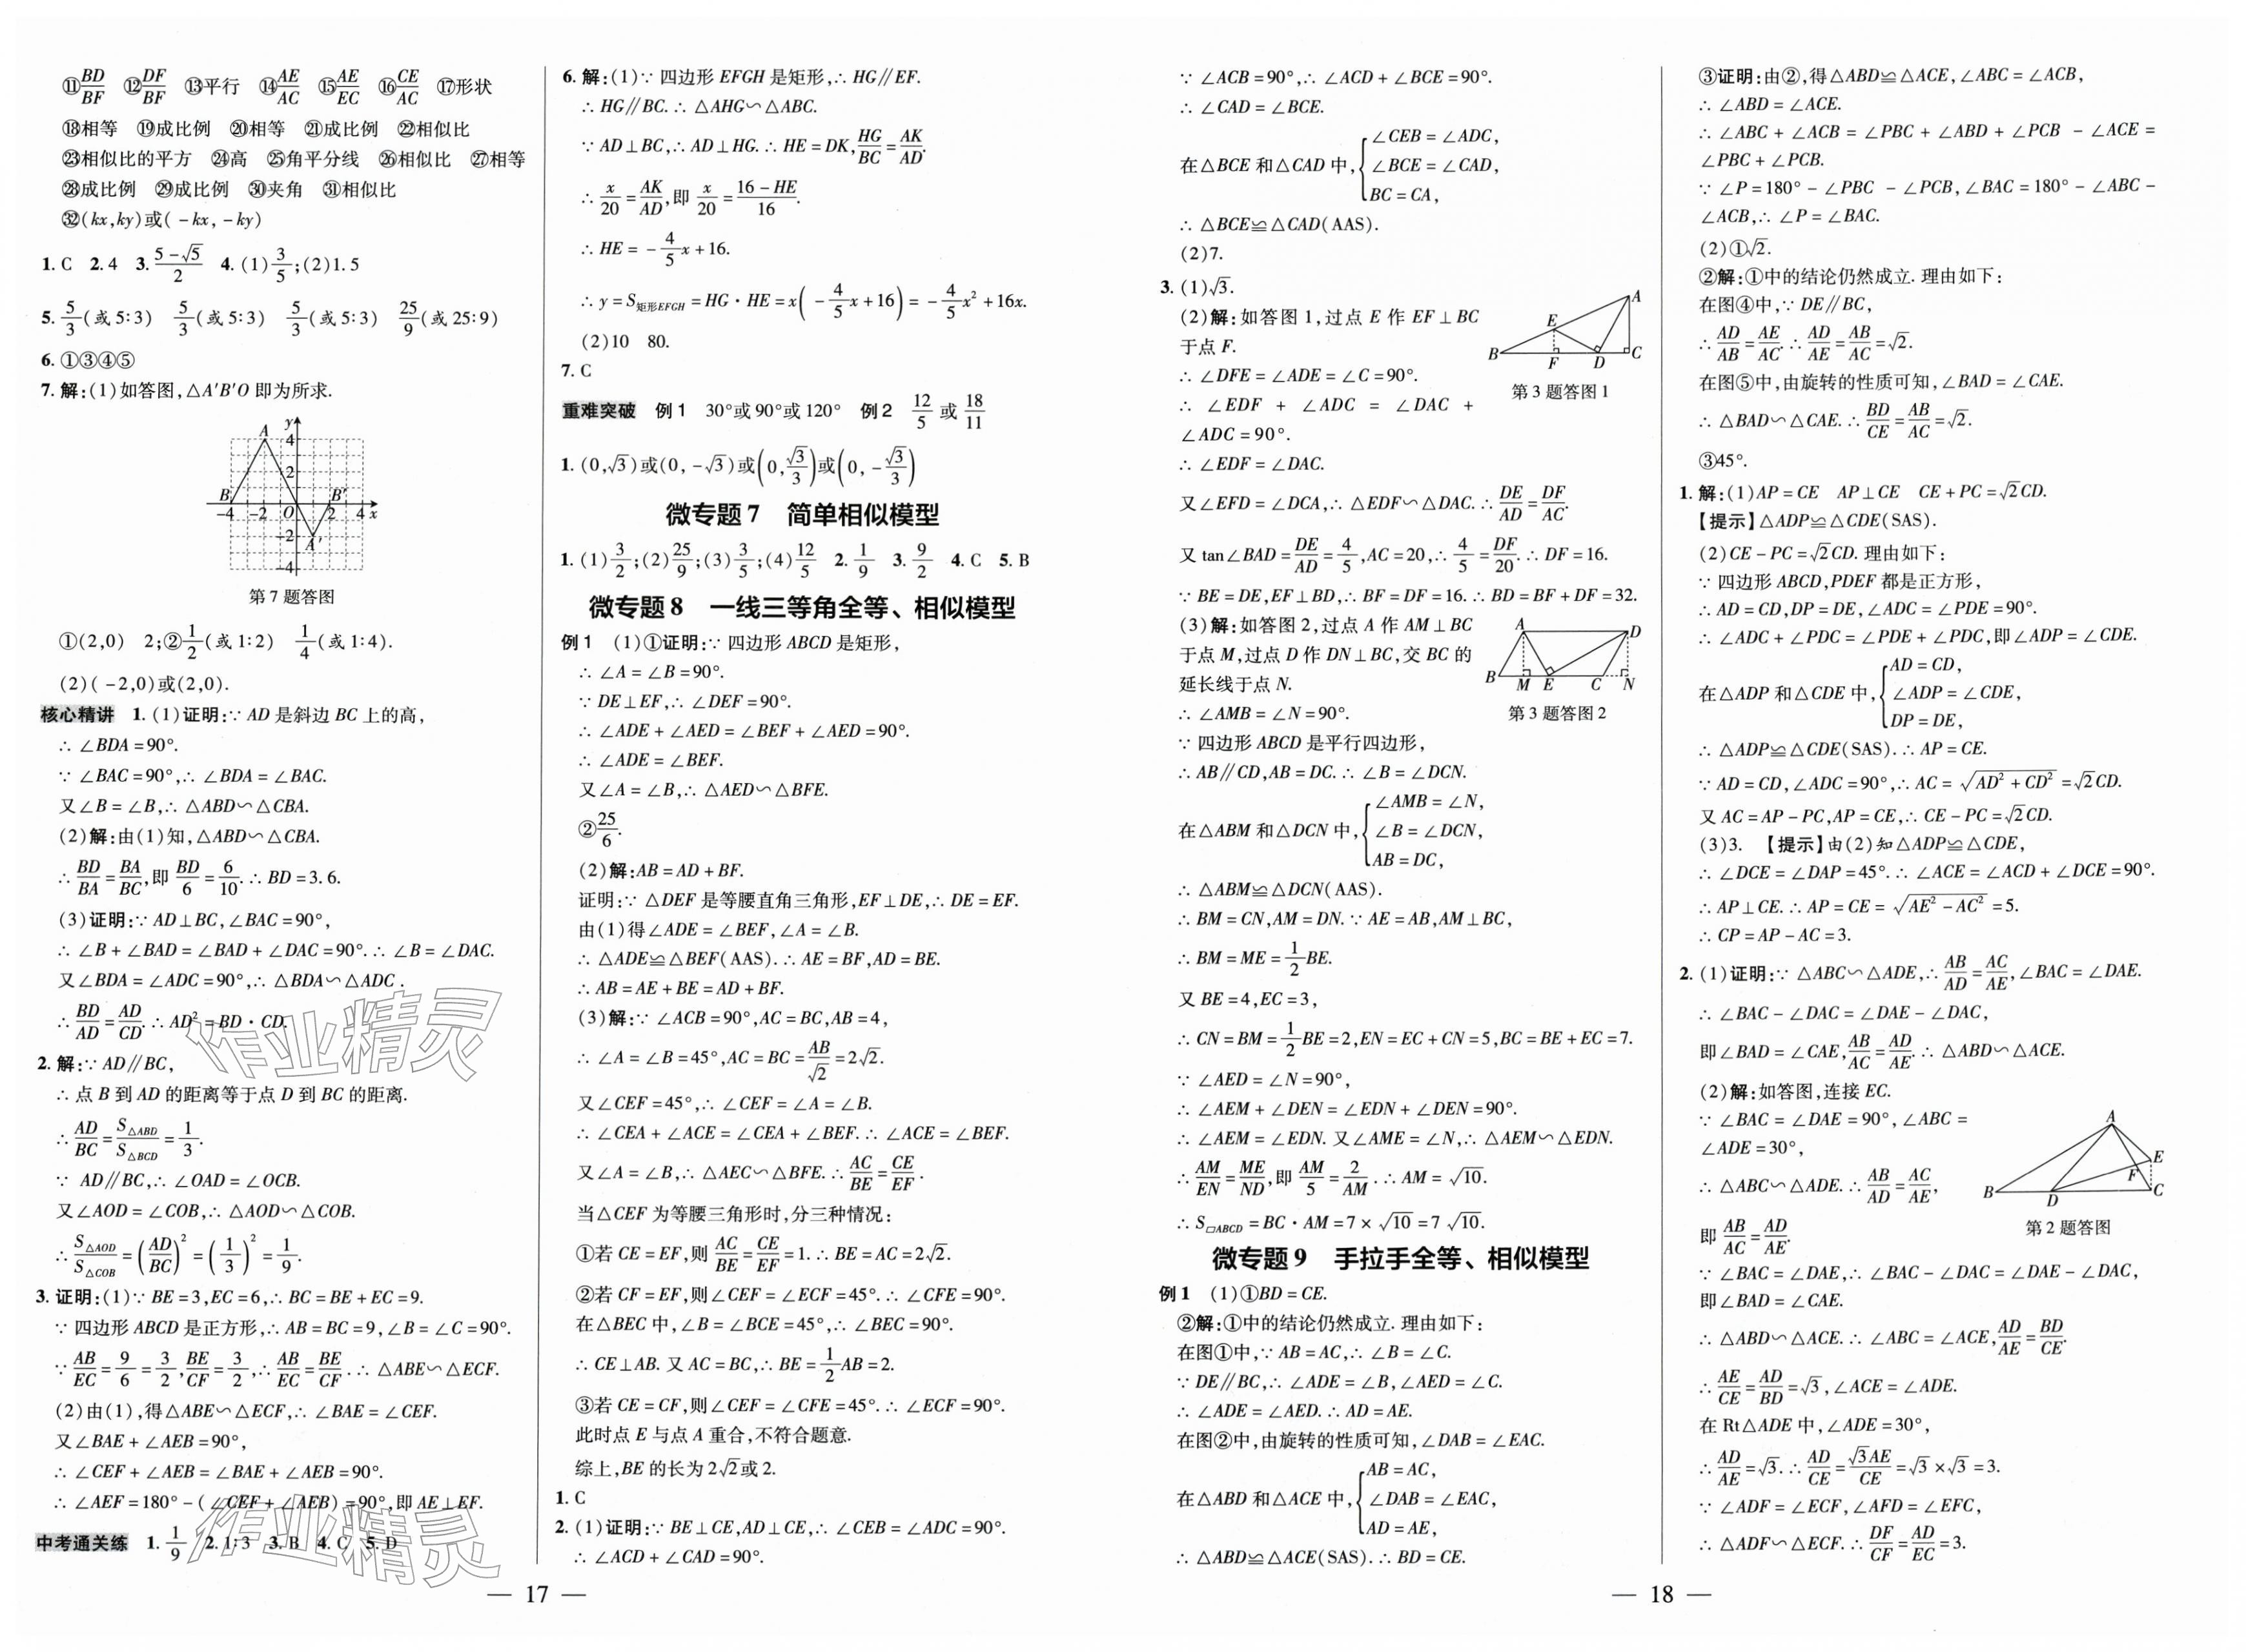 ⑪BD/BF ⑫DF/BF ⑬平行 ⑭AE/AC ⑮AE/EC ⑯CE/AC ⑰形状
⑱相等 ⑲成比例 ⑳相等 ㉑成比例 ㉒相似比
㉓相似比的平方 ㉔高 ㉕角平分线 ㉖相似比 ㉗相等
㉘成比例 ㉙成比例 ㉚夹角 ㉛相似比
㉜(kx,ky)或(-kx,-ky)
1. C 2. 4 3. (5-√5)/2 4. (1)3/5;(2)1.5
5. 5/3(或5∶3) 5/3(或5∶3) 5/3(或5∶3) 25/9(或25∶9)
6. ①③④⑤
7. 解:(1)如答图,△A′B′O即为所求.
A y 4 2 B B′ -4 -2 O 2 4 x -2 A′ -4
第7题答图
①(2,0) 2;②1/2(或1∶2) 1/4(或1∶4).
(2)(-2,0)或(2,0).
核心精讲 1. (1)证明:∵AD是斜边BC上的高,
∴∠BDA=90°.
∵∠BAC=90°,∴∠BDA=∠BAC.
又∠B=∠B,∴△ABD∽△CBA.
(2)解:由(1)知,△ABD∽△CBA.
∴BD/BA=BA/BC,即BD/6=6/10.∴BD=3.6.
(3)证明:∵AD⊥BC,∠BAC=90°,
∴∠B+∠BAD=∠BAD+∠DAC=90°.∴∠B=∠DAC.
又∠BDA=∠ADC=90°,∴△BDA∽△ADC.
∴BD/AD=AD/CD.∴AD²=BD·CD.
2. 解:∵AD∥BC,
∴点B到AD的距离等于点D到BC的距离.
∴AD/BC=S△ABD/S△BCD=1/3.
∵AD∥BC,∴∠OAD=∠OCB.
又∠AOD=∠COB,∴△AOD∽△COB.
∴S△AOD/S△COB=(AD/BC)²=(1/3)²=1/9.
3. 证明:(1)∵BE=3,EC=6,∴BC=BE+EC=9.
∵四边形ABCD是正方形,∴AB=BC=9,∠B=∠C=90°.
∵AB/EC=9/6=3/2,BE/CF=3/2,∴AB/EC=BE/CF.∴△ABE∽△ECF.
(2)由(1),得△ABE∽△ECF,∴∠BAE=∠CEF.
又∠BAE+∠AEB=90°,
∴∠CEF+∠AEB=∠BAE+∠AEB=90°.
∴∠AEF=180°-(∠CEF+∠AEB)=90°,即AE⊥EF.
中考通关练 1. 1/9 2. 1∶3 3. B 4. C 5. D
6. 解:(1)∵四边形EFGH是矩形,∴HG∥EF.
∴HG∥BC.∴△AHG∽△ABC.
∵AD⊥BC,∴AD⊥HG.∴HE=DK,HG/BC=AK/AD.
∴x/20=AK/AD,即x/20=(16-HE)/16.
∴HE=-4/5x+16.
∴y=S矩形EFGH=HG·HE=x(-4/5x+16)=-4/5x²+16x.
(2)10 80.
7. C
重难突破 例1 30°或90°或120° 例2 12/5或18/11
1. (0,√3)或(0,-√3)或(0,√3/3)或(0,-√3/3)
微专题7 简单相似模型
1. (1)3/2;(2)25/9;(3)3/5;(4)12/5 2. 1/9 3. 9/2 4. C 5. B
微专题8 一线三等角全等、相似模型
例1 (1)①证明:∵四边形ABCD是矩形,
∴∠A=∠B=90°.
∵DE⊥EF,∴∠DEF=90°.
∴∠ADE+∠AED=∠BEF+∠AED=90°.
∴∠ADE=∠BEF.
又∠A=∠B,∴△AED∽△BFE.
②25/6.
(2)解:AB=AD+BF.
证明:∵△DEF是等腰直角三角形,EF⊥DE,∴DE=EF.
由(1)得∠ADE=∠BEF,∠A=∠B.
∴△ADE≌△BEF(AAS).∴AE=BF,AD=BE.
∴AB=AE+BE=AD+BF.
(3)解:∵∠ACB=90°,AC=BC,AB=4,
∴∠A=∠B=45°,AC=BC=AB/√2=2√2.
又∠CEF=45°,∴∠CEF=∠A=∠B.
∴∠CEA+∠ACE=∠CEA+∠BEF.∴∠ACE=∠BEF.
又∠A=∠B,∴△AEC∽△BFE.∴AC/BE=CE/EF.
当△CEF为等腰三角形时,分三种情况:
①若CE=EF,则AC/BE=CE/EF=1.∴BE=AC=2√2.
②若CF=EF,则∠CEF=∠ECF=45°.∴∠CFE=90°.
在△BEC中,∠B=∠BCE=45°,∴∠BEC=90°.
∴CE⊥AB.又AC=BC,∴BE=1/2AB=2.
③若CE=CF,则∠CEF=∠CFE=45°.∴∠ECF=90°.
此时点E与点A重合,不符合题意.
综上,BE的长为2√2或2.
1. C
2. (1)证明:∵BE⊥CE,AD⊥CE,∴∠CEB=∠ADC=90°.
∴∠ACD+∠CAD=90°.
— 17 —
∵∠ACB=90°,∴∠ACD+∠BCE=90°.
∴∠CAD=∠BCE.
在△BCE和△CAD中,{∠CEB=∠ADC,
∠BCE=∠CAD,
BC=CA,
∴△BCE≌△CAD(AAS).
(2)7.
3. (1)√3.
(2)解:如答图1,过点E作EF⊥BC
于点F.
∴∠DFE=∠ADE=∠C=90°.
∴∠EDF+∠ADC=∠DAC+
∠ADC=90°.
∴∠EDF=∠DAC.
A E B F D C
第3题答图1
又∠EFD=∠DCA,∴△EDF∽△DAC.∴DE/AD=DF/AC.
又tan∠BAD=DE/AD=4/5,AC=20,∴4/5=DF/20.∴DF=16.
∵BE=DE,EF⊥BD,∴BF=DF=16.∴BD=BF+DF=32.
(3)解:如答图2,过点A作AM⊥BC
于点M,过点D作DN⊥BC,交BC的
延长线于点N.
∴∠AMB=∠N=90°.
A D B M E C N
第3题答图2
∵四边形ABCD是平行四边形,
∴AB∥CD,AB=DC.∴∠B=∠DCN.
在△ABM和△DCN中,{∠AMB=∠N,
∠B=∠DCN,
AB=DC,
∴△ABM≌△DCN(AAS).
∴BM=CN,AM=DN.∵AE=AB,AM⊥BC,
∴BM=ME=1/2BE.
又BE=4,EC=3,
∴CN=BM=1/2BE=2,EN=EC+CN=5,BC=BE+EC=7.
∵∠AED=∠N=90°,
∴∠AEM+∠DEN=∠EDN+∠DEN=90°.
∴∠AEM=∠EDN.又∠AME=∠N,∴△AEM∽△EDN.
∴AM/EN=ME/ND,即AM/5=2/AM.∴AM=√10.
∴S▱ABCD=BC·AM=7×√10=7√10.
微专题9 手拉手全等、相似模型
例1 (1)①BD=CE.
②解:①中的结论仍然成立.理由如下:
在图①中,∵AB=AC,∴∠B=∠C.
∵DE∥BC,∴∠ADE=∠B,∠AED=∠C.
∴∠ADE=∠AED.∴AD=AE.
在图②中,由旋转的性质可知,∠DAB=∠EAC.
在△ABD和△ACE中,{AB=AC,
∠DAB=∠EAC,
AD=AE,
∴△ABD≌△ACE(SAS).∴BD=CE.
③证明:由②,得△ABD≌△ACE,∠ABC=∠ACB,
∴∠ABD=∠ACE.
∴∠ABC+∠ACB=∠PBC+∠ABD+∠PCB-∠ACE=
∠PBC+∠PCB.
∵∠P=180°-∠PBC-∠PCB,∠BAC=180°-∠ABC-
∠ACB,∴∠P=∠BAC.
(2)①√2.
②解:①中的结论仍然成立.理由如下:
在图④中,∵DE∥BC,
∴AD/AB=AE/AC.∴AD/AE=AB/AC=√2.
在图⑤中,由旋转的性质可知,∠BAD=∠CAE.
∴△BAD∽△CAE.∴BD/CE=AB/AC=√2.
③45°.
1. 解:(1)AP=CE AP⊥CE CE+PC=√2CD.
【提示】△ADP≌△CDE(SAS).
(2)CE-PC=√2CD.理由如下:
∵四边形ABCD,PDEF都是正方形,
∴AD=CD,DP=DE,∠ADC=∠PDE=90°.
∴∠ADC+∠PDC=∠PDE+∠PDC,即∠ADP=∠CDE.
在△ADP和△CDE中,{AD=CD,
∠ADP=∠CDE,
DP=DE,
∴△ADP≌△CDE(SAS).∴AP=CE.
∵AD=CD,∠ADC=90°,∴AC=√(AD²+CD²)=√2CD.
又AC=AP-PC,AP=CE,∴CE-PC=√2CD.
(3)3. 【提示】由(2)知△ADP≌△CDE,
∴∠DCE=∠DAP=45°.∴∠ACE=∠ACD+∠DCE=90°.
∴AP⊥CE.∴AP=CE=√(AE²-AC²)=5.
∴CP=AP-AC=3.
2. (1)证明:∵△ABC∽△ADE,∴AB/AD=AC/AE,∠BAC=∠DAE.
∴∠BAC-∠DAC=∠DAE-∠DAC,
即∠BAD=∠CAE,AB/AC=AD/AE.∴△ABD∽△ACE.
(2)解:如答图,连接EC.
∵∠BAC=∠DAE=90°,∠ABC=
∠ADE=30°,
∴△ABC∽△ADE.∴AB/AD=AC/AE,
即AB/AC=AD/AE.
A E F B D C
第2题答图
∵∠BAC=∠DAE,∴∠BAC-∠DAC=∠DAE-∠DAC,
即∠BAD=∠CAE.
∴△ABD∽△ACE.∴∠ABC=∠ACE,AD/AE=BD/CE.
∴AE/CE=AD/BD=√3,∠ACE=∠ADE.
在Rt△ADE中,∠ADE=30°,
∴AD/AE=√3.∴AD/CE=√3AE/CE=√3×√3=3.
∵∠ADF=∠ECF,∠AFD=∠EFC,
∴△ADF∽△ECF.∴DF/CF=AD/EC=3.
— 18 —
作业精灵
作业精灵